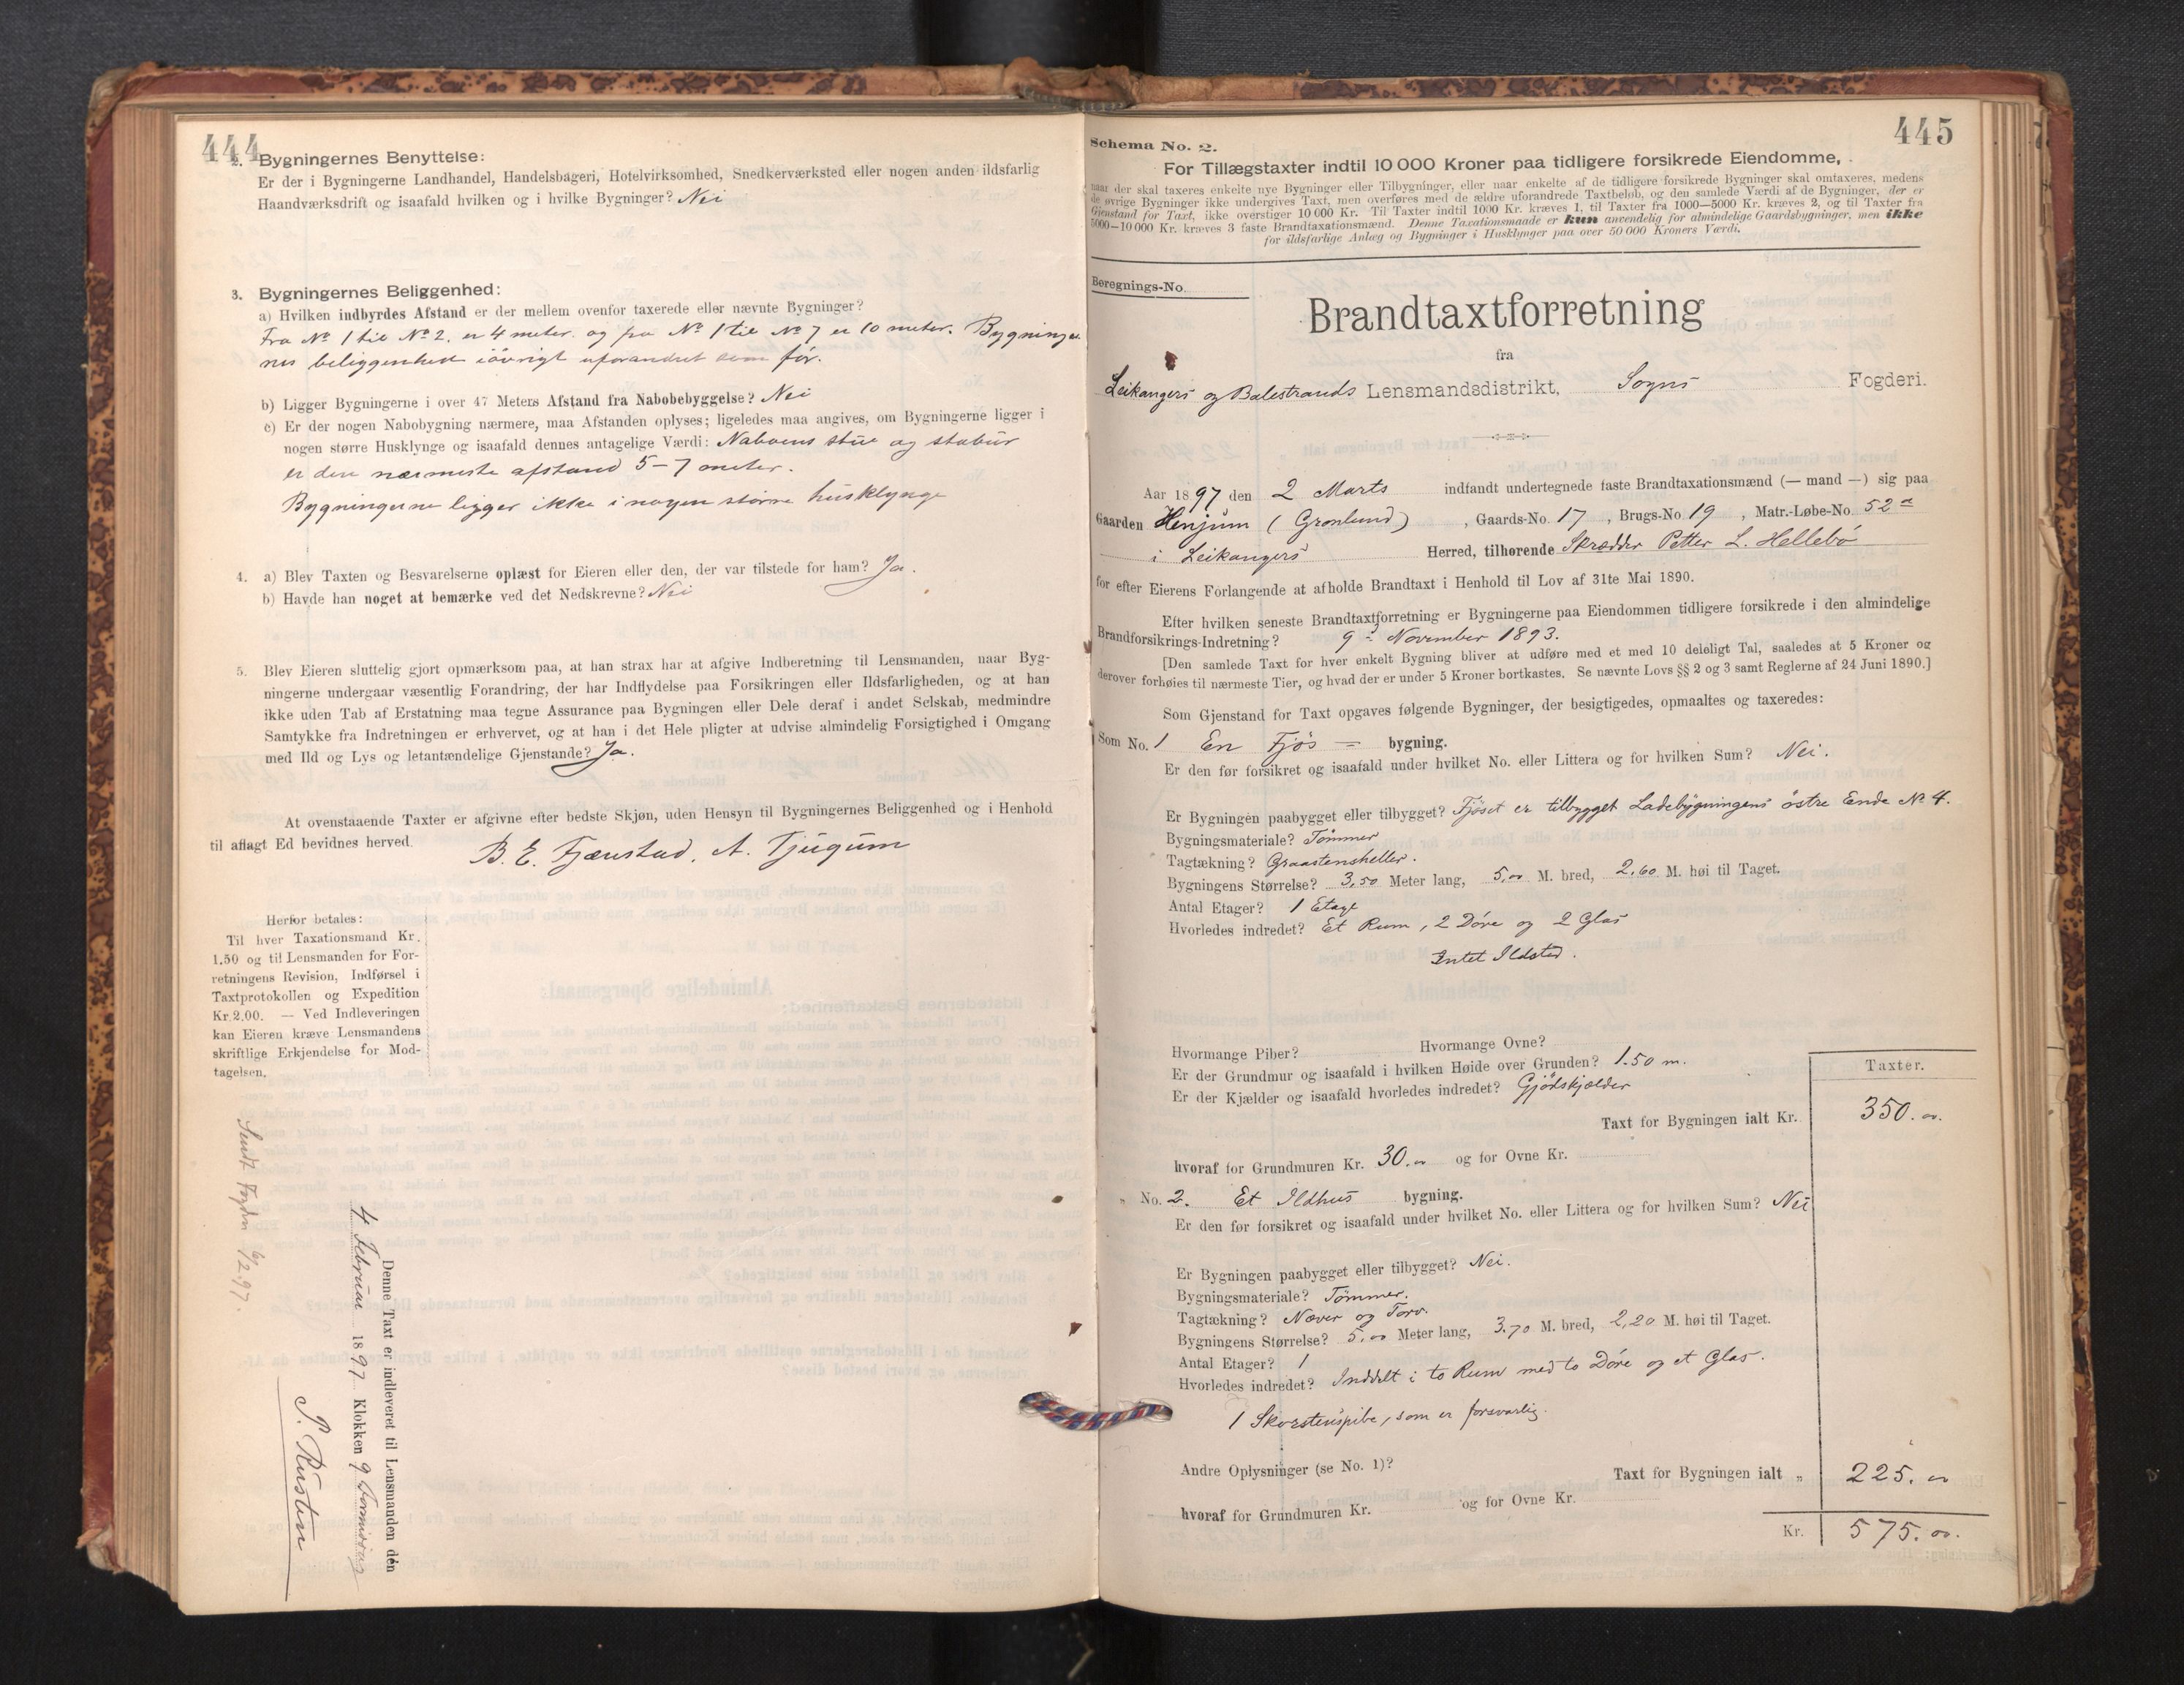 444
2. Bygningernes Benyttelse:
Er der i Bygningerne Landhandel, Handelsbageri, Hotelvirksomhed, Snedkerværksted eller nogen anden ildsfarlig
Haandværksdrift og isaafald hvilken og i hvilke Bygninger? Nei
3. Bygningernes Beliggenhed:
a) Hvilken indbyrdes Afstand er der mellem ovenfor taxerede eller nævnte Bygninger?
Fra No 1 til No 2. er 4 meter. og fra No 1 til No 7 er 10 meter. Bygninger
nes beliggenhed iövrigt uforandret som før.
b) Ligger Bygningerne i over 47 Meters Afstand fra Nabobebyggelse? Nei
c) Er der nogen Nabobygning nærmere, maa Afstanden oplyses; ligeledes maa angives, om Bygningerne ligger i
nogen større Husklynge og isaafald dennes antagelige Værdi: Naboens stue og stabur
er den nærmeste afstand 5-7 meter.
Bygningerne ligger ikke i nogen større husklynge
4. a) Blev Taxten og Besvarelserne oplæst for Eieren eller den, der var tilstede for ham? Ja.
b) Havde han noget at bemærke ved det Nedskrevne? Nei
5. Blev Eieren sluttelig gjort opmærksom paa, at han strax har at afgive Indberetning til Lensmanden, naar Byg-
ningerne undergaar væsentlig Forandring, der har Indflydelse paa Forsikringen eller Ildsfarligheden, og at han
ikke uden Tab af Erstatning maa tegne Assurance paa Bygningen eller Dele deraf i andet Selskab, medmindre
Samtykke fra Indretningen er erhvervet, og at han i det Hele pligter at udvise almindelig Forsigtighed i Omgang
med Ild og Lys og letantændelige Gjenstande? Ja.
At ovenstaaende Taxter er afgivne efter bedste Skjøn, uden Hensyn til Bygningernes Beliggenhed og i Henhold
til aflagt Ed bevidnes herved.
B. E. Fjærstad, A. Tjugum
Herfor betales:
Til hver Taxationsmand Kr.
1.50 og til Lensmanden for For-
retningens Revision, Indførsel i
Taxtprotokollen og Expedition
Kr. 2.00. — Ved Indleveringen
kan Eieren kræve Lensmandens
skriftlige Erkjendelse for Mod-
tagelsen.
Sendt Fogden 6/2.97.
Denne Taxt er indleveret til Lensmanden den
4 Februar 1897 Klokken 9 Formiddag
P. Rusten
445
Schema No. 2.
For Tillægstaxter indtil 10 000 Kroner paa tidligere forsikrede Eiendomme,
naar der skal taxeres enkelte nye Bygninger eller Tilbygninger, eller naar enkelte af de tidligere forsikrede Bygninger skal omtaxeres, medens
de øvrige Bygninger ikke undergives Taxt, men overføres med de ældre uforandrede Taxtbeløb, og den samlede Værdi af de Bygninger, der er
Gjenstand for Taxt, ikke overstiger 10 000 Kr. Til Taxter indtil 1000 Kr. kræves 1, til Taxter fra 1000—5000 Kr. kræves 2, og til Taxter fra
5000—10 000 Kr. kræves 3 faste Brandtaxationsmænd. Denne Taxationsmaade er kun anvendelig for almindelige Gaardsbygninger, men ikke
for ildsfarlige Anlæg og Bygninger i Husklynger paa over 50 000 Kroners Værdi.
Beregnings-No.
Brandtaxtforretning
fra
Leikangers og Balestrands Lensmandsdistrikt, Sogns Fogderi.
Aar 1897 den 2 Marts indfandt undertegnede faste Brandtaxationsmænd (— mand —) sig paa
Gaarden Henjum (Gronlund), Gaards-No. 17, Brugs-No. 19, Matr.-Løbe-No. 52 a
i Leikangers Herred, tilhørende Skrædder Petter L. Hellebö
for efter Eierens Forlangende at afholde Brandtaxt i Henhold til Lov af 31te Mai 1890.
Efter hvilken seneste Brandtaxtforretning er Bygningerne paa Eiendommen tidligere forsikrede i den almindelige
Brandforsikrings-Indretning? 9 November 1893.
[Den samlede Taxt for hver enkelt Bygning bliver at udføre med et med 10 deleligt Tal, saaledes at 5 Kroner og
derover forhøies til nærmeste Tier, og hvad der er under 5 Kroner bortkastes. Se nævnte Lovs §§ 2 og 3 samt Reglerne af 24 Juni 1890.]
Som Gjenstand for Taxt opgaves følgende Bygninger, der besigtigedes, opmaaltes og taxeredes:
Som No. 1 En Fjøs = bygning.
Er den før forsikret og isaafald under hvilket No. eller Littera og for hvilken Sum? Nei.
Er Bygningen paabygget eller tilbygget? Fjøset er tilbygget Ladebygningens östre Ende No 4.
Bygningsmateriale? Tömmer
Tagtækning? Graastensheller.
Bygningens Størrelse? 3,50 Meter lang, 5,00 M. bred, 2.60 M. høi til Taget.
Antal Etager? 1 Etage
Hvorledes indredet? Et Rum, 2 Döre og 2 Glas
Intet Ildsted.
Hvormange Piber? Hvormange Ovne?
Er der Grundmur og isaafald i hvilken Høide over Grunden? 1.50 m.
Er der Kjælder og isaafald hvorledes indredet? Gjødskjælder
Taxter.
Taxt for Bygningen ialt Kr. 350.00
hvoraf for Grundmuren Kr. 30.00 og for Ovne Kr.
" No. 2. Et Ildhus bygning.
Er den før forsikret og isaafald under hvilket No. eller Littera og for hvilken Sum? Nei
Er Bygningen paabygget eller tilbygget? Nei.
Bygningsmateriale? Tömmer.
Tagtækning? Næver og Torv.
Bygningens Størrelse? 5,00 Meter lang, 3,70 M. bred, 2,20 M. høi til Taget.
Antal Etager? 1
Hvorledes indredet? Inddelt i to Rum med to Döre og et Glas.
1 Skorstenspibe, som er forsvarlig.
Andre Oplysninger (se No. 1)?
Taxt for Bygningen ialt " 225.00
hvoraf for Grundmuren Kr. og for Ovne Kr.
Kr. 575.00.